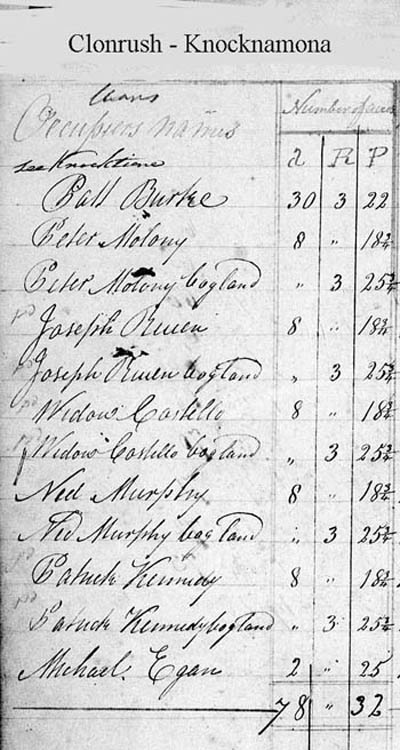 Clonrush - Knocknamona
Occupiers names Number of acres
see Knocktiane A R P
Batt Burke 30 3 22
Peter Molony 8 " 18¾
Peter Molony bogland " 3 25¾
pd Joseph Ruen 8 " 18¾
pd Joseph Ruen bogland " 3 25¾
pd Widow Costello 8 " 18¾
pd Widow Costello bogland " 3 25¾
Ned Murphy 8 " 18¾
Ned Murphy bogland " 3 25¾
pd Patrick Kennedy 8 " 18¾
Patrick Kennedy bogland " 3 25¾
Michael Egan 2 " 25
78 " 32